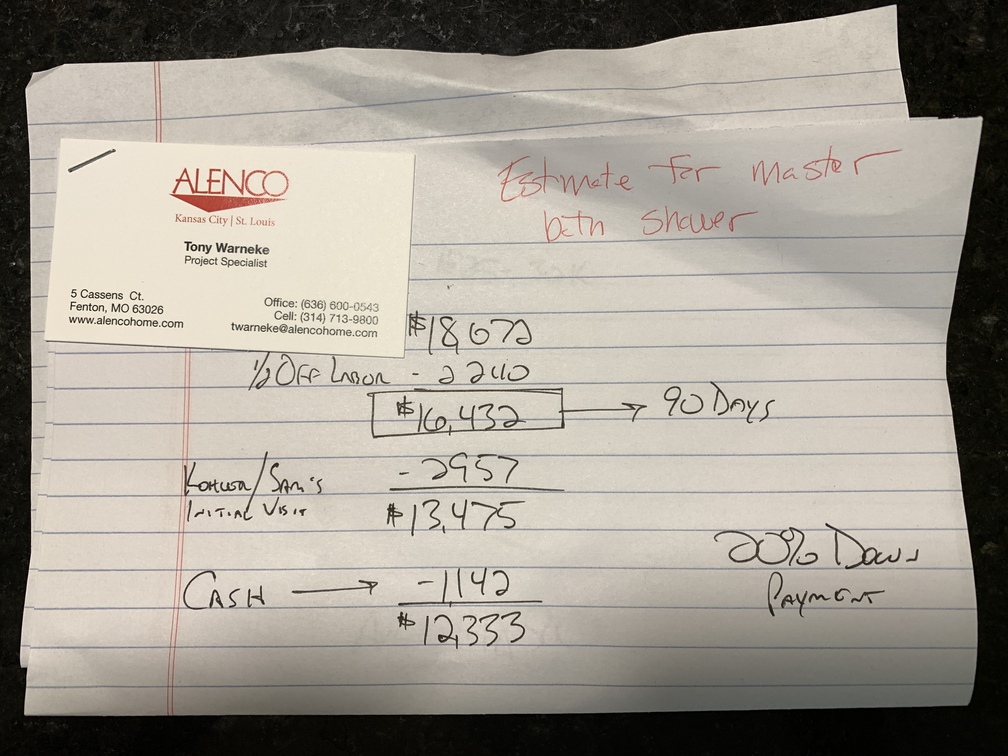 Estimate for master
bath shower
ALENCO
Kansas City | St. Louis
Tony Warneke
Project Specialist
5 Cassens Ct.
Fenton, MO 63026
www.alencohome.com
Office: (636) 600-0543
Cell: (314) 713-9800
twarneke@alencohome.com
$18,672
1/2 OFF LABOR - 2240
$16,432 → 90 DAYS
KOHLER/SAM'S - 2957
INITIAL VISIT $13,475
20% DOWN
PAYMENT
CASH → -1142
$12,333